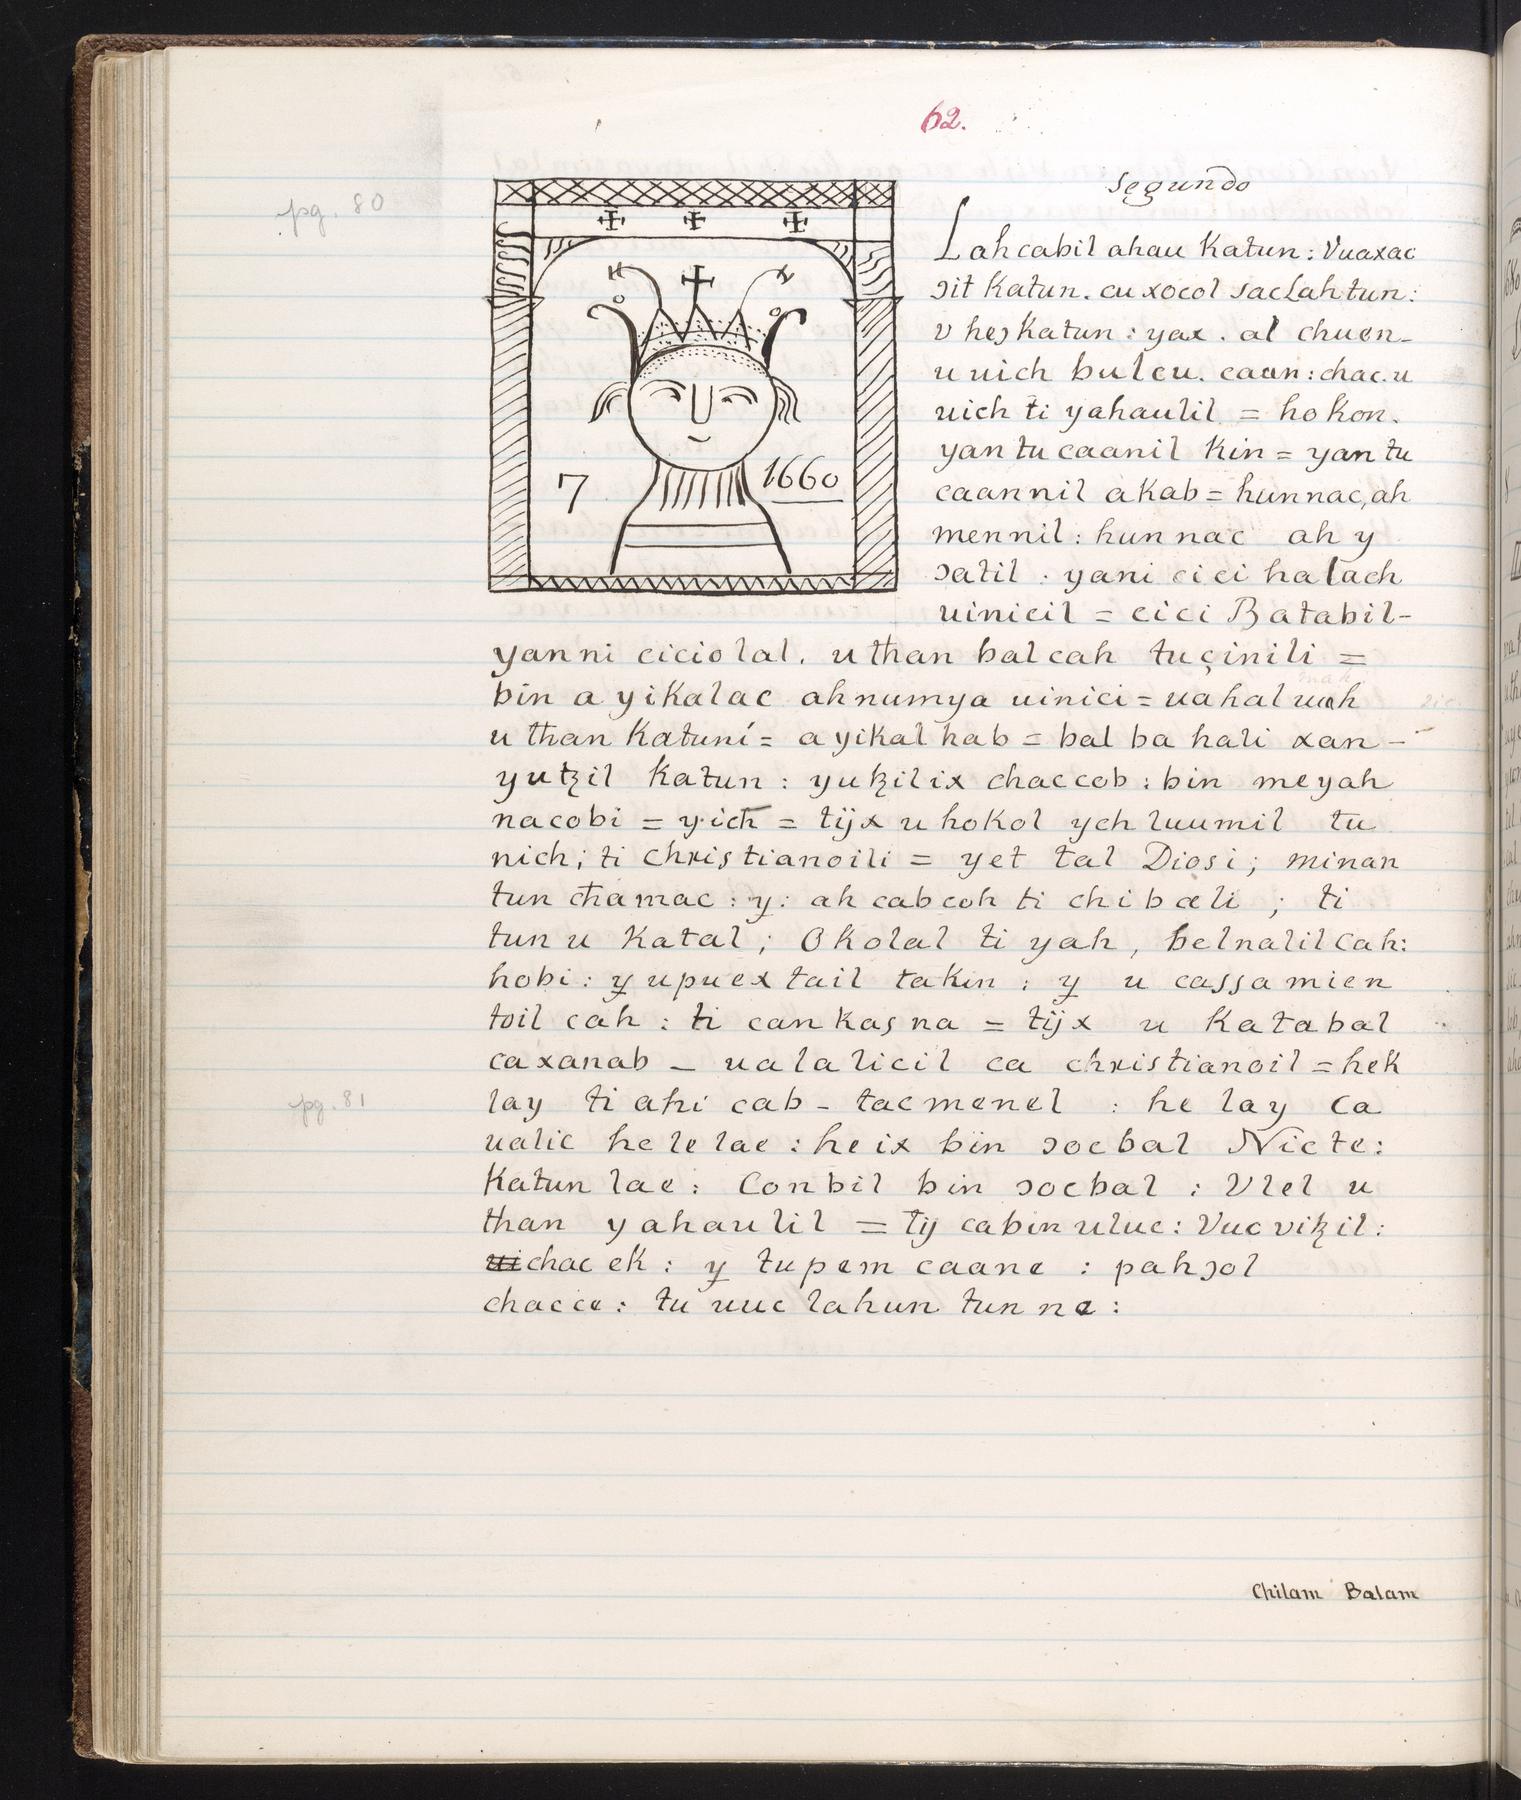 62.
pg. 80
segundo
Lahcabil ahau Katun : Vuaxac
ɔit Katun . cu xocol saclahtun :
v heɔ Katun : yax . al chuen -
u uich buleu . caan : chac . u
uich ti yahaulil = ho kon .
yan tu caanil Kin = yan tu
caannil akab = hunnac, ah
mennil : hun nac ah y
ɔatil . yani cici halach
uinicil = cici Batabil -
7 1660
yanni ciciolal . u than balcah tuçinili =
mah
bin ayikalac ahnumya uinici = uahal uah
u than Katuni = ayikal hab = bal ba hali xan -
yutꜩil Katun : yuꜩilix chaccob : bin meyah
nacobi = y.ich = tijx u hokol ych luumil tu
nich ; ti christianoili = yet tal Diosi ; minan
tun chamac : y : ah cab coh ti chibali ; ti
tun u Katal ; Okolal ti yah , belnalil cah :
hobi : y upuextail takin : y u cassamien
toil cah : ti can kas na = tijx u Katabal
caxanab - ualalicil ca christianoil = hek
pg. 81
lay ti ahi cab - tacmenel : he lay ca
ualic he le lae : he ix bin ɔocbal Nicte :
Katun lae : Conbil bin ɔocbal : Vlel u
than yahaulil = Tij cabin uluc : Vuc viꜩil :
ui chac ek : y tupem caane : pahɔol
chacce : tu uuc lahun tunne :
Chilam Balam